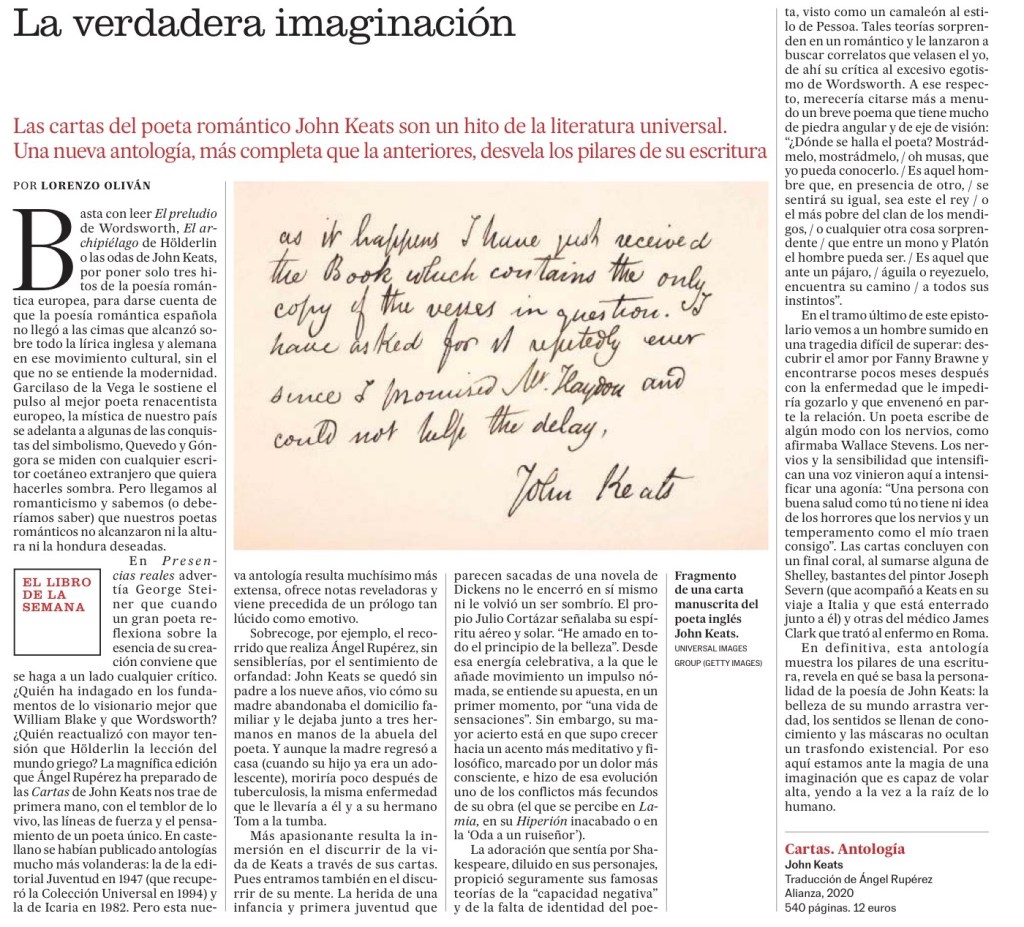 La verdadera imaginación
Las cartas del poeta romántico John Keats son un hito de la literatura universal.
Una nueva antología, más completa que la anteriores, desvela los pilares de su escritura
POR LORENZO OLIVÁN
Basta con leer El preludio
de Wordsworth, El ar-
chipiélago de Hölderlin
o las odas de John Keats,
por poner solo tres hi-
tos de la poesía román-
tica europea, para darse cuenta de
que la poesía romántica española
no llegó a las cimas que alcanzó so-
bre todo la lírica inglesa y alemana
en ese movimiento cultural, sin el
que no se entiende la modernidad.
Garcilaso de la Vega le sostiene el
pulso al mejor poeta renacentista
europeo, la mística de nuestro país
se adelanta a algunas de las conquis-
tas del simbolismo, Quevedo y Gón-
gora se miden con cualquier escri-
tor coetáneo extranjero que quiera
hacerles sombra. Pero llegamos al
romanticismo y sabemos (o debe-
ríamos saber) que nuestros poetas
románticos no alcanzaron ni la altu-
ra ni la hondura deseadas.
EL LIBRO
DE LA
SEMANA
En Presen-
cias reales adver-
tía George Stei-
ner que cuando
un gran poeta re-
flexiona sobre la
esencia de su crea-
ción conviene que
se haga a un lado cualquier crítico.
¿Quién ha indagado en los funda-
mentos de lo visionario mejor que
William Blake y que Wordsworth?
¿Quién reactualizó con mayor ten-
sión que Hölderlin la lección del
mundo griego? La magnífica edición
que Ángel Rupérez ha preparado de
las Cartas de John Keats nos trae de
primera mano, con el temblor de lo
vivo, las líneas de fuerza y el pensa-
miento de un poeta único. En caste-
llano se habían publicado antologías
mucho más volanderas: la de la edi-
torial Juventud en 1947 (que recupe-
ró la Colección Universal en 1994) y
la de Icaria en 1982. Pero esta nue-
as it happens I have just received
the Book which contains the only
copy of the verses in question. I
have asked for it repetedly ever
since I promised Mr. Haydon and
could not help the delay,
John Keats
va antología resulta muchísimo más
extensa, ofrece notas reveladoras y
viene precedida de un prólogo tan
lúcido como emotivo.
Sobrecoge, por ejemplo, el reco-
rrido que realiza Ángel Rupérez, sin
sensiblerías, por el sentimiento de
orfandad: John Keats se quedó sin
padre a los nueve años, vio cómo su
madre abandonaba el domicilio fa-
miliar y le dejaba junto a tres her-
manos en manos de la abuela del
poeta. Y aunque la madre regresó a
casa (cuando su hijo ya era un ado-
lescente), moriría poco después de
tuberculosis, la misma enfermedad
que le llevaría a él y a su hermano
Tom a la tumba.
Más apasionante resulta la in-
mersión en el discurrir de la vi-
da de Keats a través de sus cartas.
Pues entramos también en el discu-
rrir de su mente. La herida de una
infancia y primera juventud que
parecen sacadas de una novela de
Dickens no le encerró en sí mismo
ni le volvió un ser sombrío. El pro-
pio Julio Cortázar señalaba su espí-
ritu aéreo y solar. “He amado en to-
do el principio de la belleza”. Desde
esa energía celebrativa, a la que le
añade movimiento un impulso nó-
mada, se entiende su apuesta, en un
primer momento, por “una vida de
sensaciones”. Sin embargo, su ma-
yor acierto está en que supo crecer
hacia un acento más meditativo y fi-
losófico, marcado por un dolor más
consciente, e hizo de esa evolución
uno de los conflictos más fecundos
de su obra (el que se percibe en La-
mia, en su Hiperión inacabado o en
la ‘Oda a un ruiseñor’).
La adoración que sentía por Sha-
kespeare, diluido en sus personajes,
propició seguramente sus famosas
teorías de la “capacidad negativa”
y de la falta de identidad del poe-
Fragmento
de una carta
manuscrita del
poeta inglés
John Keats.
UNIVERSAL IMAGES
GROUP (GETTY IMAGES)
ta, visto como un camaleón al esti-
lo de Pessoa. Tales teorías sorpren-
den en un romántico y le lanzaron a
buscar correlatos que velasen el yo,
de ahí su crítica al excesivo egotis-
mo de Wordsworth. A ese respec-
to, merecería citarse más a menu-
do un breve poema que tiene mucho
de piedra angular y de eje de visión:
“¿Dónde se halla el poeta? Mostrád-
melo, mostrádmelo, / oh musas, que
yo pueda conocerlo. / Es aquel hom-
bre que, en presencia de otro, / se
sentirá su igual, sea este el rey / o
el más pobre del clan de los mendi-
gos, / o cualquier otra cosa sorpren-
dente / que entre un mono y Platón
el hombre pueda ser. / Es aquel que
ante un pájaro, / águila o reyezuelo,
encuentra su camino / a todos sus
instintos”.
En el tramo último de este episto-
lario vemos a un hombre sumido en
una tragedia difícil de superar: des-
cubrir el amor por Fanny Brawne y
encontrarse pocos meses después
con la enfermedad que le impedi-
ría gozarlo y que envenenó en par-
te la relación. Un poeta escribe de
algún modo con los nervios, como
afirmaba Wallace Stevens. Los ner-
vios y la sensibilidad que intensifi-
can una voz vinieron aquí a intensi-
ficar una agonía: “Una persona con
buena salud como tú no tiene ni idea
de los horrores que los nervios y un
temperamento como el mío traen
consigo”. Las cartas concluyen con
un final coral, al sumarse alguna de
Shelley, bastantes del pintor Joseph
Severn (que acompañó a Keats en su
viaje a Italia y que está enterrado
junto a él) y otras del médico James
Clark que trató al enfermo en Roma.
En definitiva, esta antología
muestra los pilares de una escritu-
ra, revela en qué se basa la perso-
nalidad de la poesía de John Keats: la
belleza de su mundo arrastra ver-
dad, los sentidos se llenan de cono-
cimiento y las máscaras no ocultan
un trasfondo existencial. Por eso
aquí estamos ante la magia de una
imaginación que es capaz de volar
alta, yendo a la vez a la raíz de lo
humano.
Cartas. Antología
John Keats
Traducción de Ángel Rupérez
Alianza, 2020
540 páginas. 12 euros